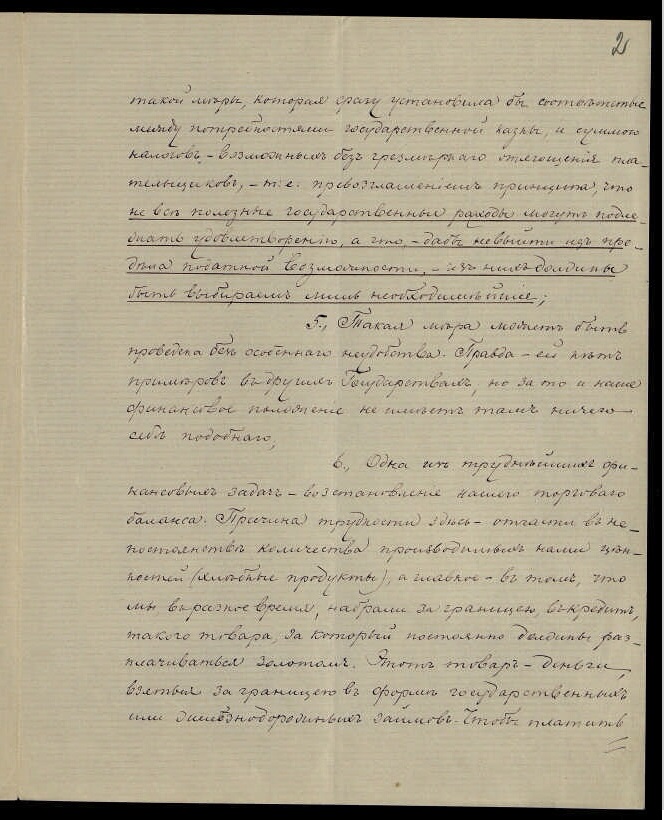 2
такой мѣры, которая сразу установила бы соотвѣтствіе
между потребностями государственной казны, и суммою
налоговъ, – возможныхъ безъ чрезмѣрнаго отягощенія пла-
тельщиковъ, – т: е: провозглашеніемъ принципа, что
не всѣ полезные государственные расходы могутъ подле-
жать удовлетворенію, а что, – дабы не выйти изъ пре-
дѣла податной возможности, – изъ нихъ должны
быть выбираемы лишь необходимѣйшіе;
5., Такая мѣра можетъ быть
проведена безъ особеннаго неудобства. Правда – ей нѣтъ
примѣровъ въ другихъ Государствахъ, но за то и наше
финансовое положеніе не имѣетъ тамъ ничего
себѣ подобнаго,
6., Одна изъ труднѣйшихъ фи-
нансовыхъ задачъ – возстановленіе нашего торговаго
баланса. Причина трудности здѣсь – отчасти въ не-
постоянствѣ количества производимыхъ нами цѣн-
ностей (хлѣбные продукты), а главное – въ томъ, что
мы въ разное время, набрали за границею, въ кредитъ,
такого товара, за который постоянно должны рас-
плачиваться золотомъ. Этотъ товаръ – деньги,
взятыя за границею въ формѣ государственныхъ
или желѣзнодорожныхъ займовъ. Чтобы платить